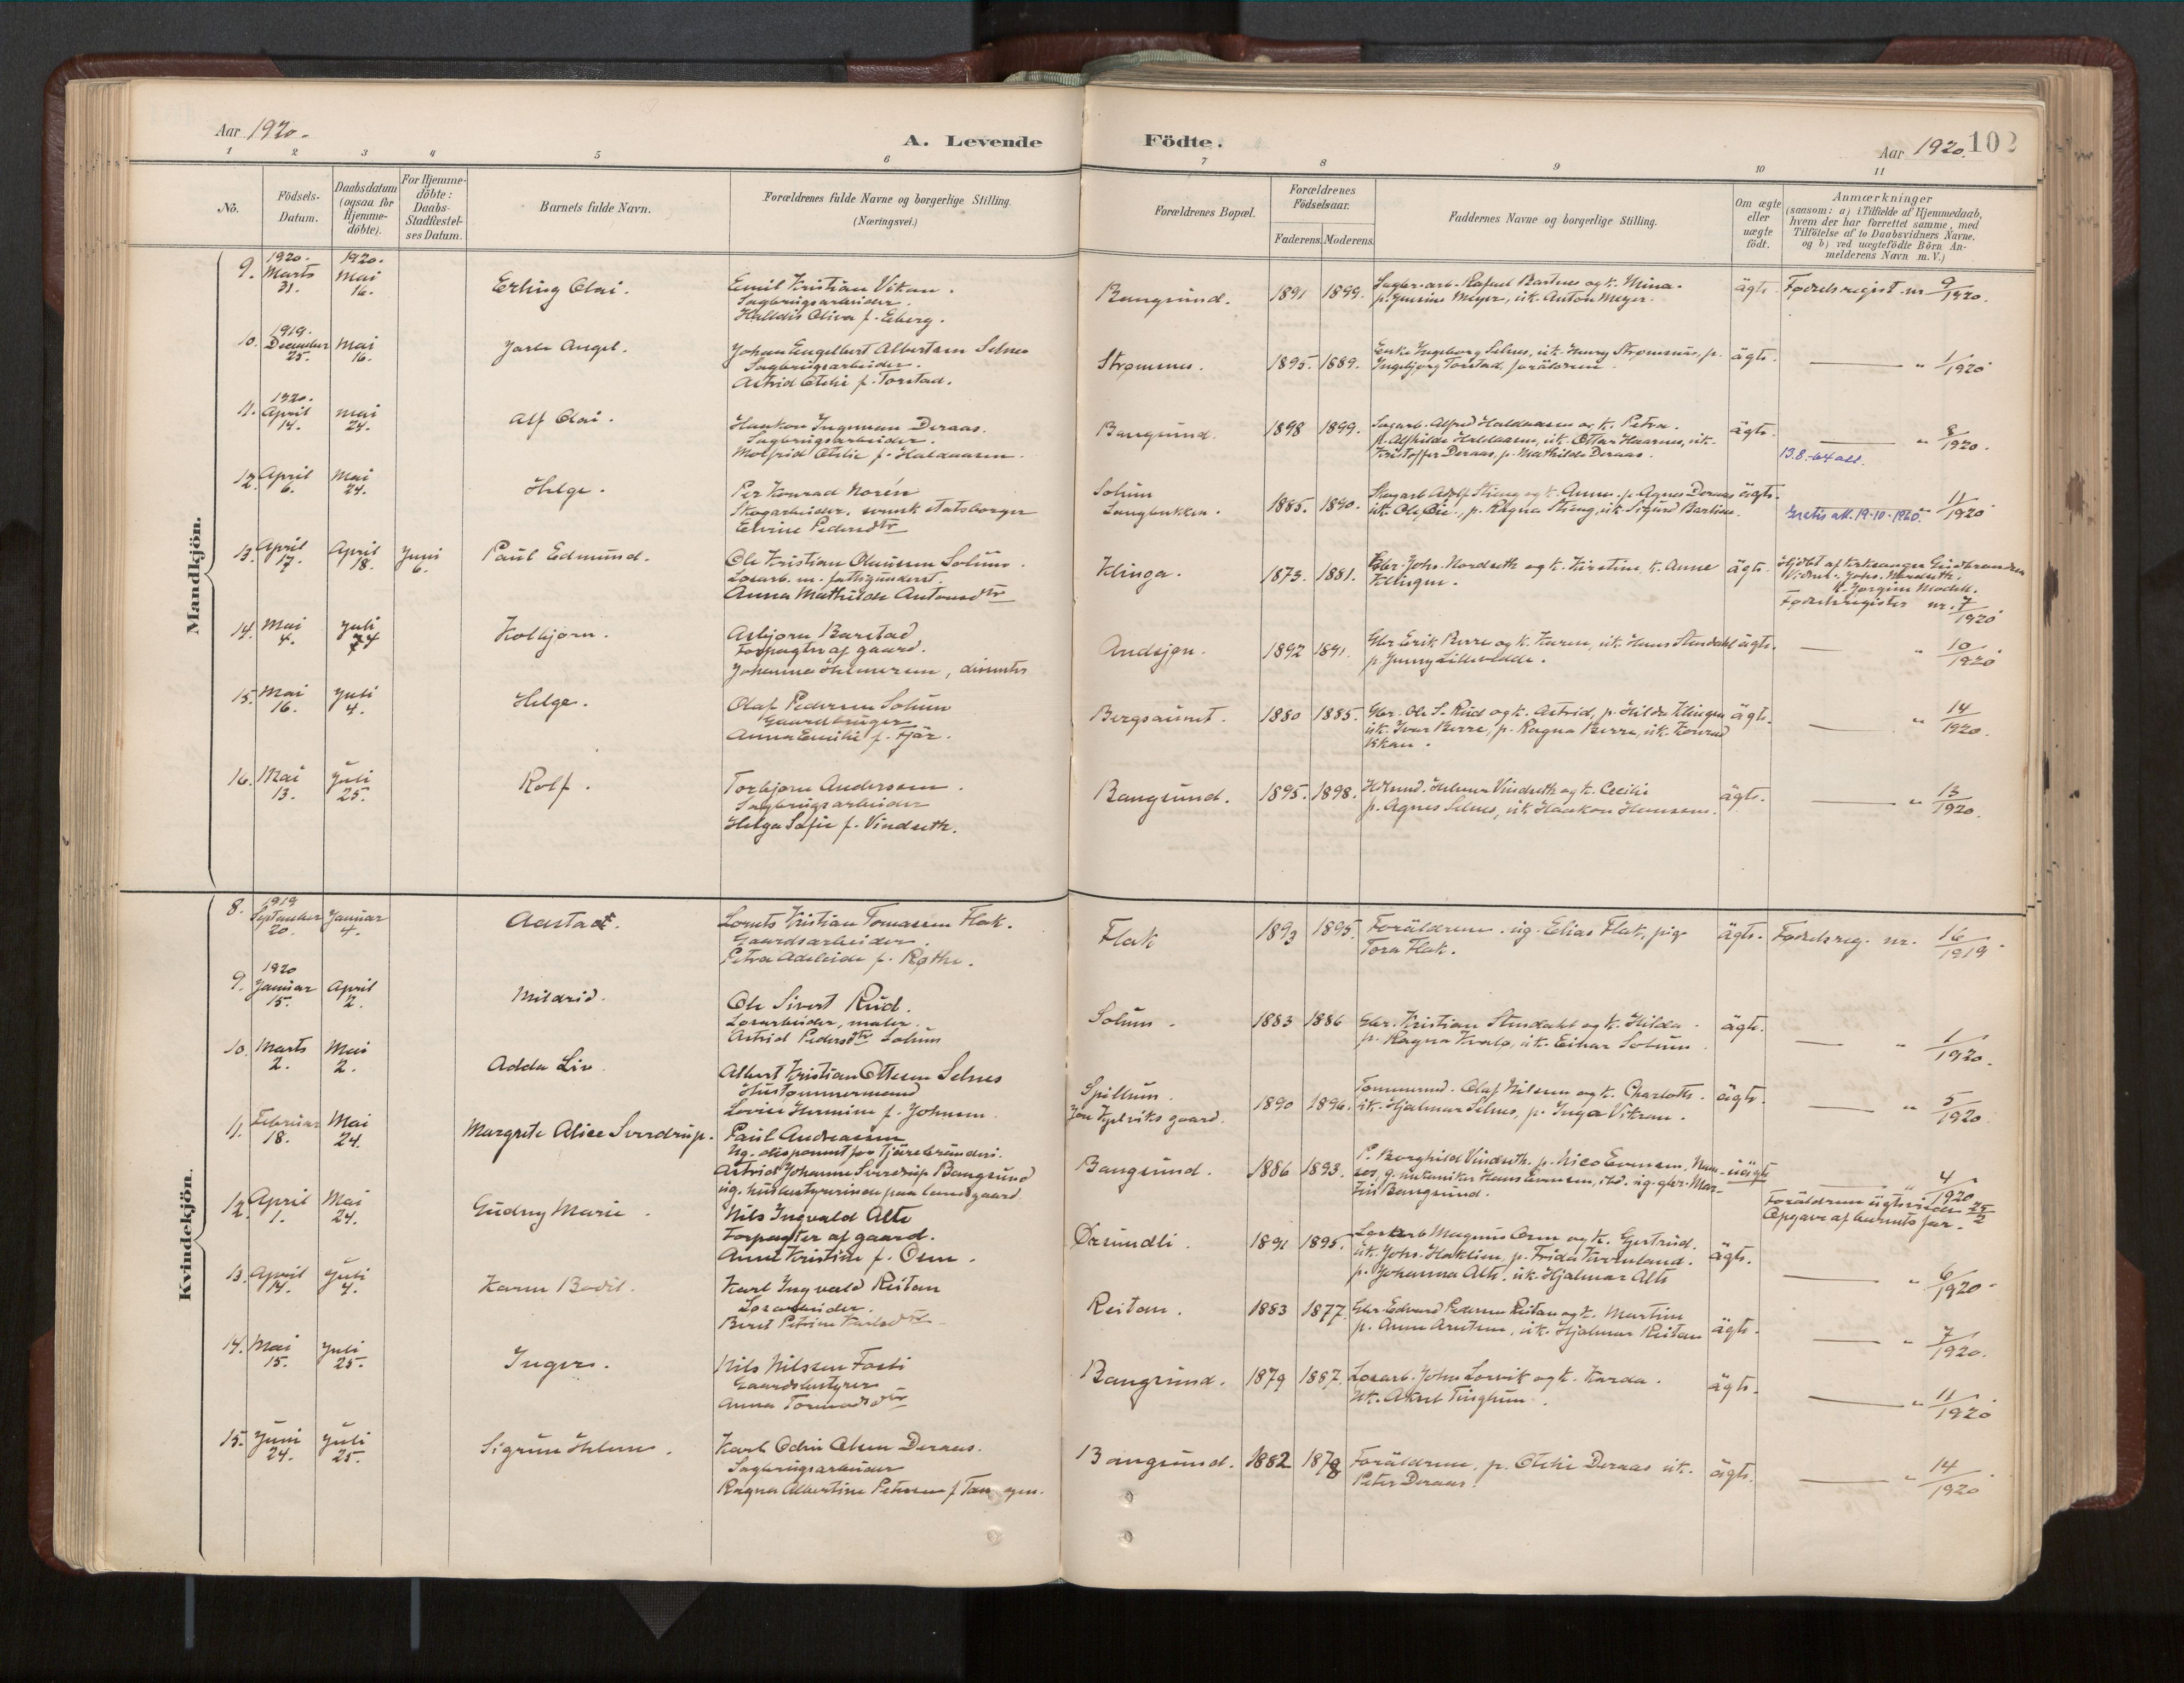 Aar 1920.
A. Levende
Födte.
Aar 1920. 102
1 2 3 4 5 6 7 8 9 10 11
No.
Födsels-
Datum.
Daabsdatum
(ogsaa for
Hjemme-
döbte).
For Hjemme-
döbte:
Daabs-
Stadfestel-
ses Datum.
Barnets fulde Navn.
Forældrenes fulde Navne og borgerlige Stilling.
(Næringsvei.)
Forældrenes Bopæl.
Forældrenes
Födselsaar.
Faderens. Moderens.
Faddernes Navne og borgerlige Stilling.
Om ægte
eller
uægte
født.
Anmærkninger
(saasom: a) i Tilfælde af Hjemmedaab,
hvem der har forrettet samme, med
Tilföielse af to Daabsvidners Navne.
og b) ved uægtefödte Börn An-
melderens Navn m. V.)
Mandkjön.
9. 1920. Marts 31. 1920. Mai 16. Erling Olai.
Emil Kristian Vikan.
Sagbrugsarbeider.
Halldis Oliva f. Eberg.
Bangsund. 1891 1899.
Sagbr.arb. Rafael Bartnes og k. Mina.
p. Meyer, uk. Anton Meyer.
ägte. Fødselsregist. nr 9/1920.
10. 1919. December 25. Mai 16. Jarle Angel.
Johan Engelbert Albertsen Selnes
Sagbrugsarbeider.
Astrid Otelie f. Torstad.
Strømsnes. 1895. 1889.
Enke Ingeborg Selnes, uk. Henry Strømsnes, p.
Ingebjørg Torstad, forältrene.
ägte. " 1/1920
11. 1920. April 14. Mai 24. Alf Olai.
Haakon Ingeman Deraas.
Sagbrugsarbeider.
Molfrid Otelie f. Haldaasen.
Bangsund. 1898 1899.
Sagarb. Alfred Haldaasen og k. Petra.
p. Alfhilde Haldaasen, uk. Ottar Haarnes, uk.
Kristoffer Deraas, p. Mathilde Deraas.
ägte. " 8/1920.
13.8.-64 att.
12. April 6. Mai 24. Helge.
Per Konrad Norén
Skogarbeider, svensk statsborger
Elvine Pedersdtr
Solum
Langbakken. 1885. 1890.
Skogarb Adolf Stieng og k. Anna. p. Agnes Deraas
uk. Ole Øie, p. Ragna Stieng, uk. Sigurd
ägte. " 11/1920
Gratis att. 19-10-1960.
13. April 17. April 18. Juni 6. Paul Edmund.
Ole Kristian Olaussen Solum.
Løsarb. m. fattigunderst.
Anna Mathilde Antonsdtr
Klinga. 1873. 1881.
Gbr. Johs. Nordseth og k. Kirstine, k. Anne
Klingen.
ägte. Hjdbt af kirkesanger Gudbrandsen
Vidner: Johs. Nordseth.
K. Jørgine Modell.
Fødselsregister nr. 7/1920
14. Mai 4. Juli 4 Kolbjørn.
Asbjørn Barstad,
Forpagter af gaard.
Johanna, dissenter
Andsjøn. 1892 1891.
Gbr Erik Berre og k. Karen, uk. Hans Stendahl
p. Jenny Lillevolde.
ägte. " 10/1920
15. Mai 16. Juli 4. Helge.
Olaf Pedersen Solum
Gaardbruger
Anna Emilie f. Fjär.
Bergsaunet. 1880 1885.
Gbr. Ole S. Rud og k. Astrid, p. Hilda Klingen
uk. Ivar Berre, p. Ragna Berre, uk. Konrad
ägte. " 14/1920.
16. Mai 13. Juli 25. Rolf.
Torbjørn Anderssen.
Sagbrugsarbeider
Helga Sofie f. Vindseth.
Bangsund. 1895. 1898.
Helmer Vindseth og k. Cecilie
p. Agnes Selnes, uk. Haakon Hanssen.
ägte. " 13/1920.
Kvindekjön.
8. 1919 September 20. Januar 4. Aasta
Lorents Kristian Tomassen Flak.
Gaardsarbeider.
Petra Adeleide f. Røthe.
Flak 1893 1895.
Foräldrene. ug. Elias Flak, pig.
Tora Flak.
ägte. Fødselsreg. nr. 16/1919.
9. 1920 Januar 15. April 2. Mildrid.
Ole Sivert Rud.
Løsarbeider, maler.
Astrid Pedersdtr Solum
Solum. 1883 1886
Gbr. Kristian Stendahl og k. Hilda.
p. Ragna Kvalø, uk. Einar Solum.
ägte. " 1/1920.
10. Marts 2. Mai 2. Adda Liv.
Albert Kristian Ottesen Selnes
Hustømmermand
Lovise Hermine f. Johnsen.
Spillum.
1890 1896.
Tømmermd. Olaf Nilsen og k. Charlotte.
uk. Hjalmar Selnes, p. Inga Vikran.
ägte. " 5/1920.
11. Februar 18. Mai 24. Margrete Alice Sverdrup.
Paul Andreassen
Ug. disponent for Tjærebränderi.
Astrid Johanne Sverdrup Bangsund
ug. husbestyrerinde paa lensgaard
Bangsund. 1886 1893.
P. Borghild Vindseth. p. Nico Evensen, Nam-
sos, g. mekaniker Hans Evensen, ibd. ug. gbr. Mar-
tin Bangsund.
uägte " 4/1920
Forälderne ugtevied 25/2
Opgave af barnets far.
12. April 1. Mai 24. Gudny Marie.
Nils Ingvald Alte
Forpagter af gaard.
Anne Kristine f. Orm.
Øksundli. 1891 1895.
Løsarb Magnus Orm og k. Gjertrud.
uk. Johs. Haklien, p. Frida Kvernland.
p. Johanna Alte. uk. Hjalmar Alte
ägte. " 6/1920.
13. April 14. Juli 4. Karen Bodil.
Karl Ingvald Reitan
Løsarbeider.
Beret Petrine Karlsdtr
Reitan. 1883 1877.
Gbr Edvard Pedersen Reitan og k. Martine
p. Anna Arntsen, uk. Hjalmar Reitan
ägte. " 7/1920.
14. Mai 15. Juli 25. Inger.
Nils Nilssen Fosli
Gaardsbestyrer
Anna Tormodsdtr
Bangsund. 1879 1887.
Løsarb. John Lorvik og k. Karda.
Uk. Aksel Tinghum.
ägte. " 11/1920
15. Juni 24. Juli 25. Sigrun Helene.
Karl Odin Olsen Deraas.
Sagbrugsarbeider
Ragna Albertine Petersen f Tan gen.
Bangsund. 1882 1878
Forälderne, p. Otelie Deraas uk.
Peter Deraas.
ägte. " 14/1920